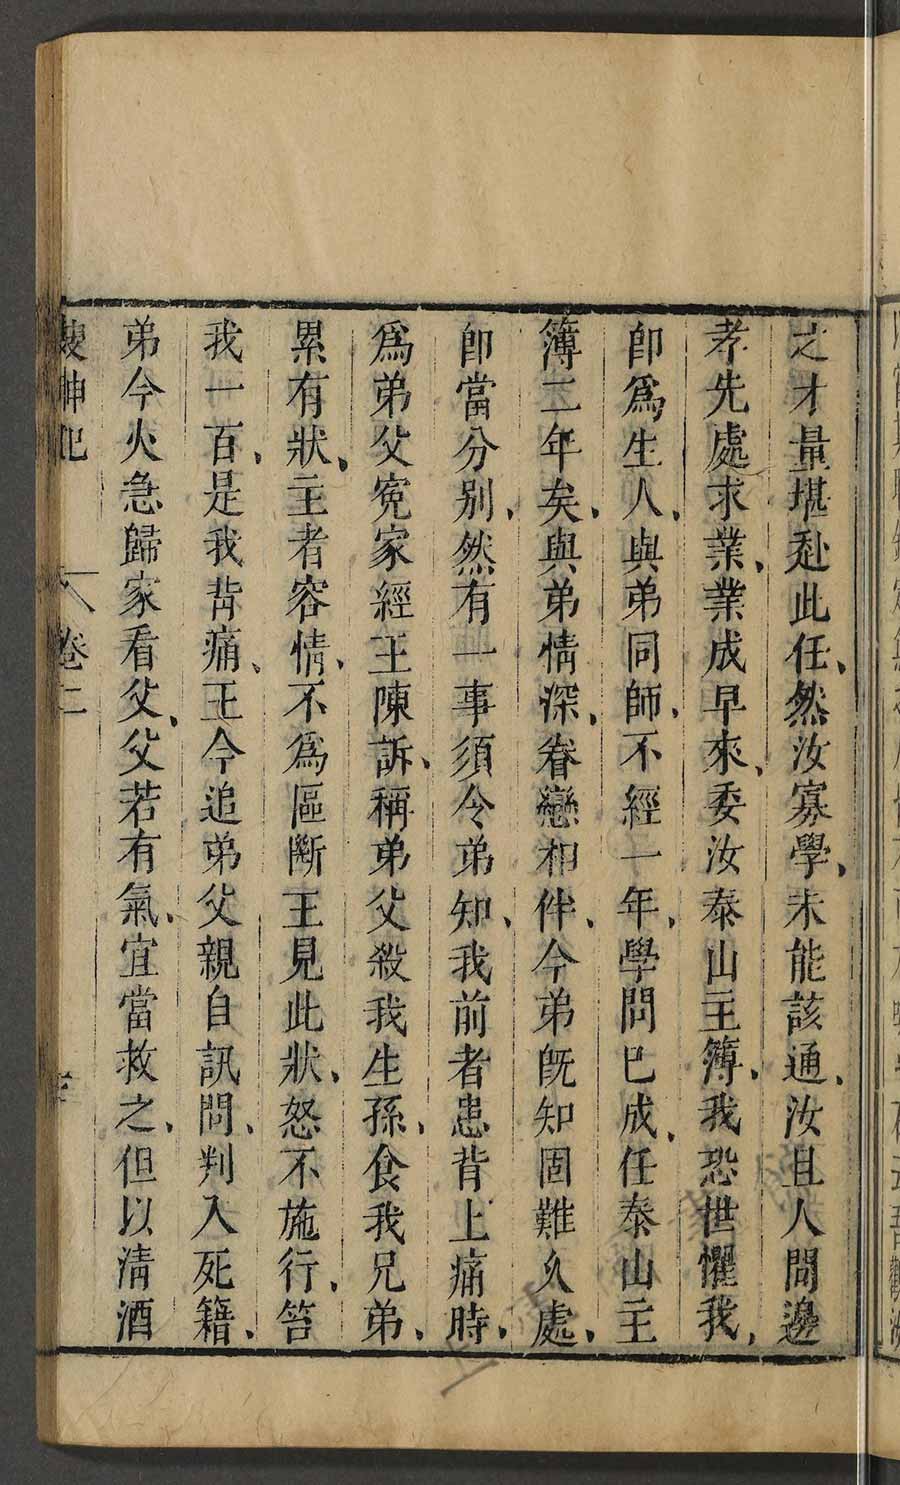 之才量堪赴此任、然汝寡學、未能該通、汝且人間邊
孝先處求業、業成早來、委汝泰山主簿、我恐世懼我、
即爲生人、與弟同師、不經一年、學問已成、任泰山主
簿二年矣、與弟情深、眷戀相伴、今弟旣知固難久處、
即當分別、然有一事須令弟知、我前者患背上痛時、
爲弟父寃家經王陳訴、稱弟父殺我生孫、食我兄弟、
累有狀、主者容情、不爲區斷王見此狀、怒不施行、笞
我一百、是我背痛、王今追弟父親自訊問、判入死籍、
弟今火急歸家看父、父若有氣、宜當救之、但以清酒
搜神記 卷二